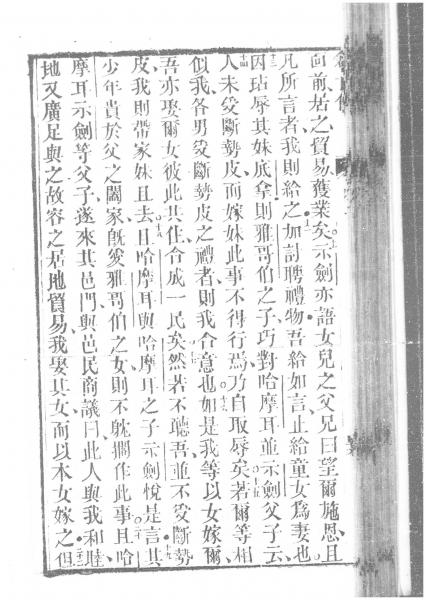 向前居之貿易獲業矣示劍亦語女兒之父兄曰望爾施恩且
凡所言者我則給之加討聘禮物吾給如言止給童女爲妻也
因玷辱其妹底拿則雅哥伯之子巧對哈摩耳並示劍父子云
人未受斷勢皮而嫁妹此事不得行焉乃自取辱矣若爾等相
似我各男受斷勢皮之禮者則我合意也如是我等以女嫁爾
吾亦娶爾女彼此其住合成一民矣然若不聽吾並不受斷勢
皮我則帶家妹且去且哈摩耳與哈摩耳之子示劍悅是言其
少年貴於父之闔家旣愛雅哥伯之女則不耽擱作此事且哈
摩耳示劍等父子遂來其邑門與邑民商議曰此人與我和睦
地又廣足與之故容之居地貿易我娶其女而以本女嫁之但